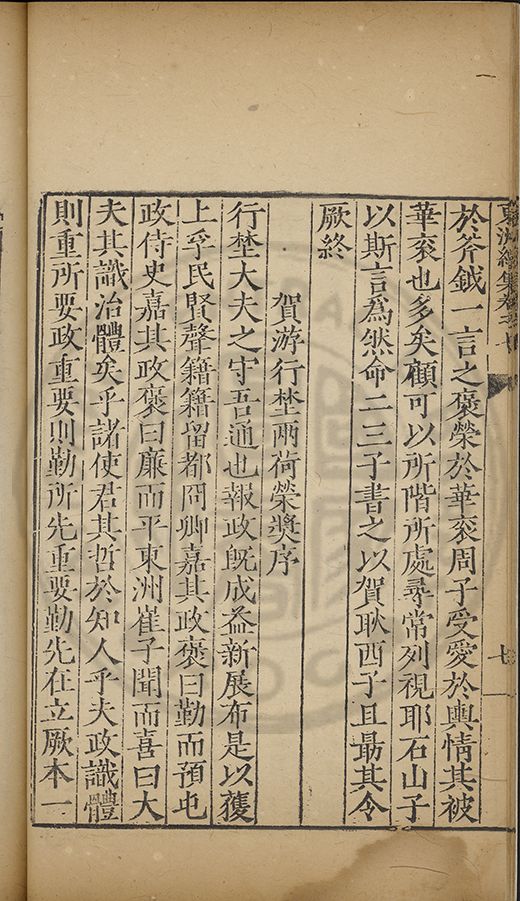 東洲續集卷之七
七
於斧鉞一言之褒榮於華衮周子受愛於輿情其被
華衮也多矣顧可以所階所處尋常列視耶石山子
以斯言爲然命二三子書之以賀耿西子且最其令
厥終
賀游行埜兩荷榮獎序
行埜大夫之守吾通也報政旣成益新展布是以獲
上孚民賢聲籍籍留都冏卿嘉其政褒曰勤而預屯
政侍史嘉其政褒曰廉而平東洲崔子聞而喜曰大
夫其識治體矣乎諸使君其哲於知人乎夫政識體
則重所要政重要則勤所先重要勤先在立厥本一